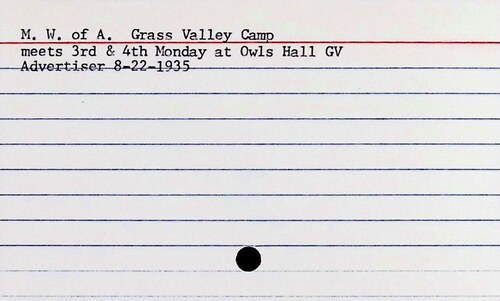 M. W. of A.  Grass Valley Camp
meets 3rd & 4th Monday at Owls Hall GV
Advertiser 8-22-1935